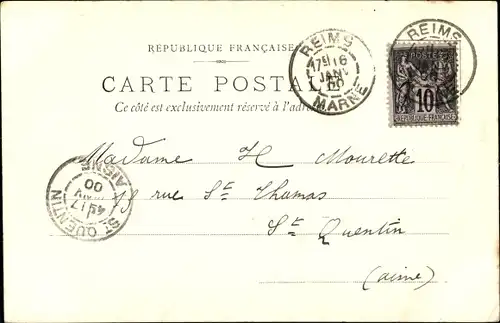 RÉPUBLIQUE FRANÇAISE
CARTE POSTALE
Ce côté est exclusivement réservé à l'adresse
REIMS
16
JANV
00
MARNE
REIMS
POSTES
10
REPUBLIQUE FRANÇAISE
Madame H Mourette
rue St Thomas
St Quentin
(aisne)
ST QUENTIN
17
00
AISNE